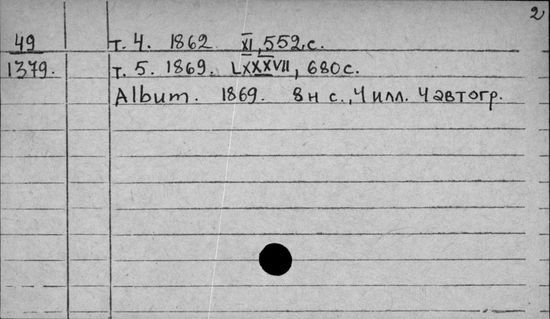 2
49 т. 4. 1862 XI, 552 с.
1379. т. 5. 1869. LXXXVII, 680 с.
Album. 1869. 8 н с., 4 илл. 4 автогр.